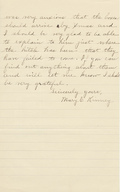 was very anxious that the box
should arrive by Xmas and
I should be very glad to be able
to explain to him just where
the letter has been that they
have failed to come. If you can
find out anything about them
and will let me know I shall
be very grateful.
Sincerely yours,
Mary E.